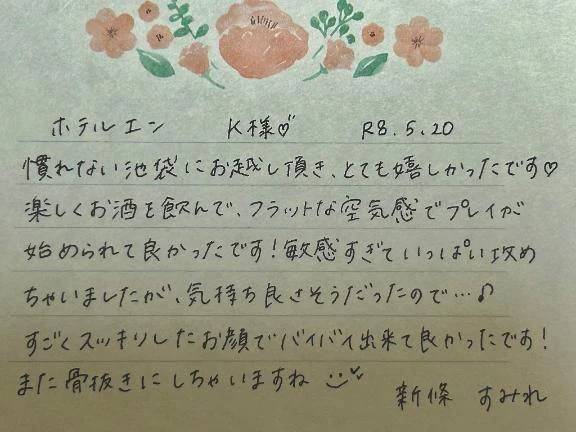 ホテルエン K様♡ R8.5.20
慣れない池袋にお越し頂き、とても嬉しかったです♡
楽しくお酒を飲んで、フラットな空気感でプレイが
始められて良かったです！敏感すぎていっぱい攻め
ちゃいましたが、気持ち良さそうだったので…♪
すごくスッキリしたお顔でバイバイ出来て良かったです！
また骨抜きにしちゃいますね
新條 すみれ